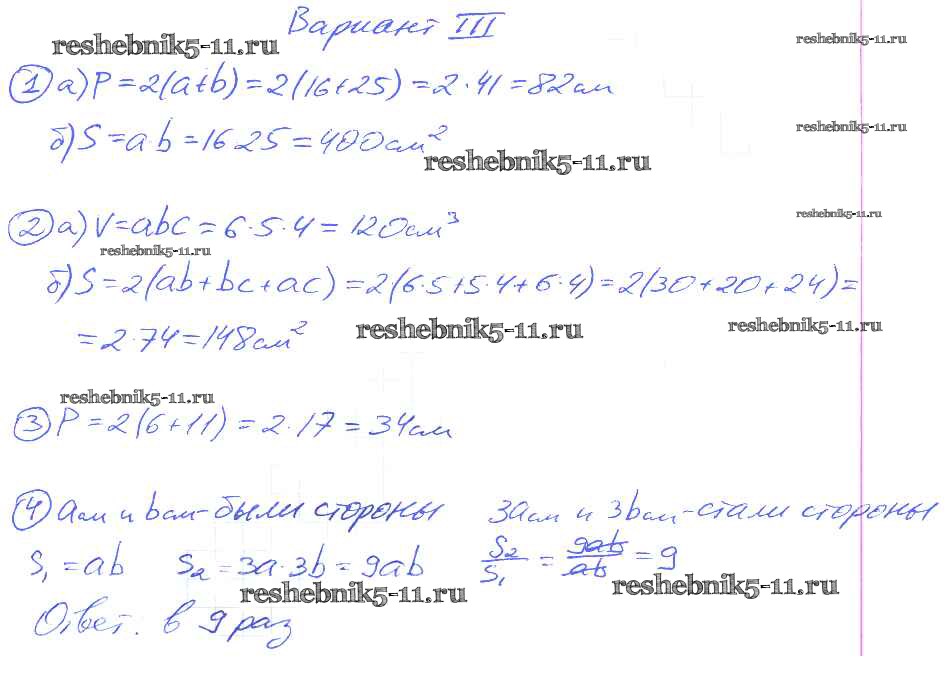 Вариант III
reshebnik5-11.ru
reshebnik5-11.ru
① а) P = 2(a+b) = 2(16+25) = 2·41 = 82см
reshebnik5-11.ru
б) S = a·b = 16 25 = 400см²
reshebnik5-11.ru
reshebnik5-11.ru
② а) V = abc = 6·5·4 = 120см³
reshebnik5-11.ru
б) S = 2(ab+bc+ac) = 2(6·5+5·4+6·4) = 2(30+20+24) =
= 2·74 = 148см²
reshebnik5-11.ru
reshebnik5-11.ru
reshebnik5-11.ru
③ P = 2(6+11) = 2·17 = 34см
④ aсм и bсм - были стороны 3aсм и 3bсм - стали стороны
S₁ = ab S₂ = 3a·3b = 9ab S₂/S₁ = 9ab/ab = 9
reshebnik5-11.ru
reshebnik5-11.ru
Ответ: в 9 раз